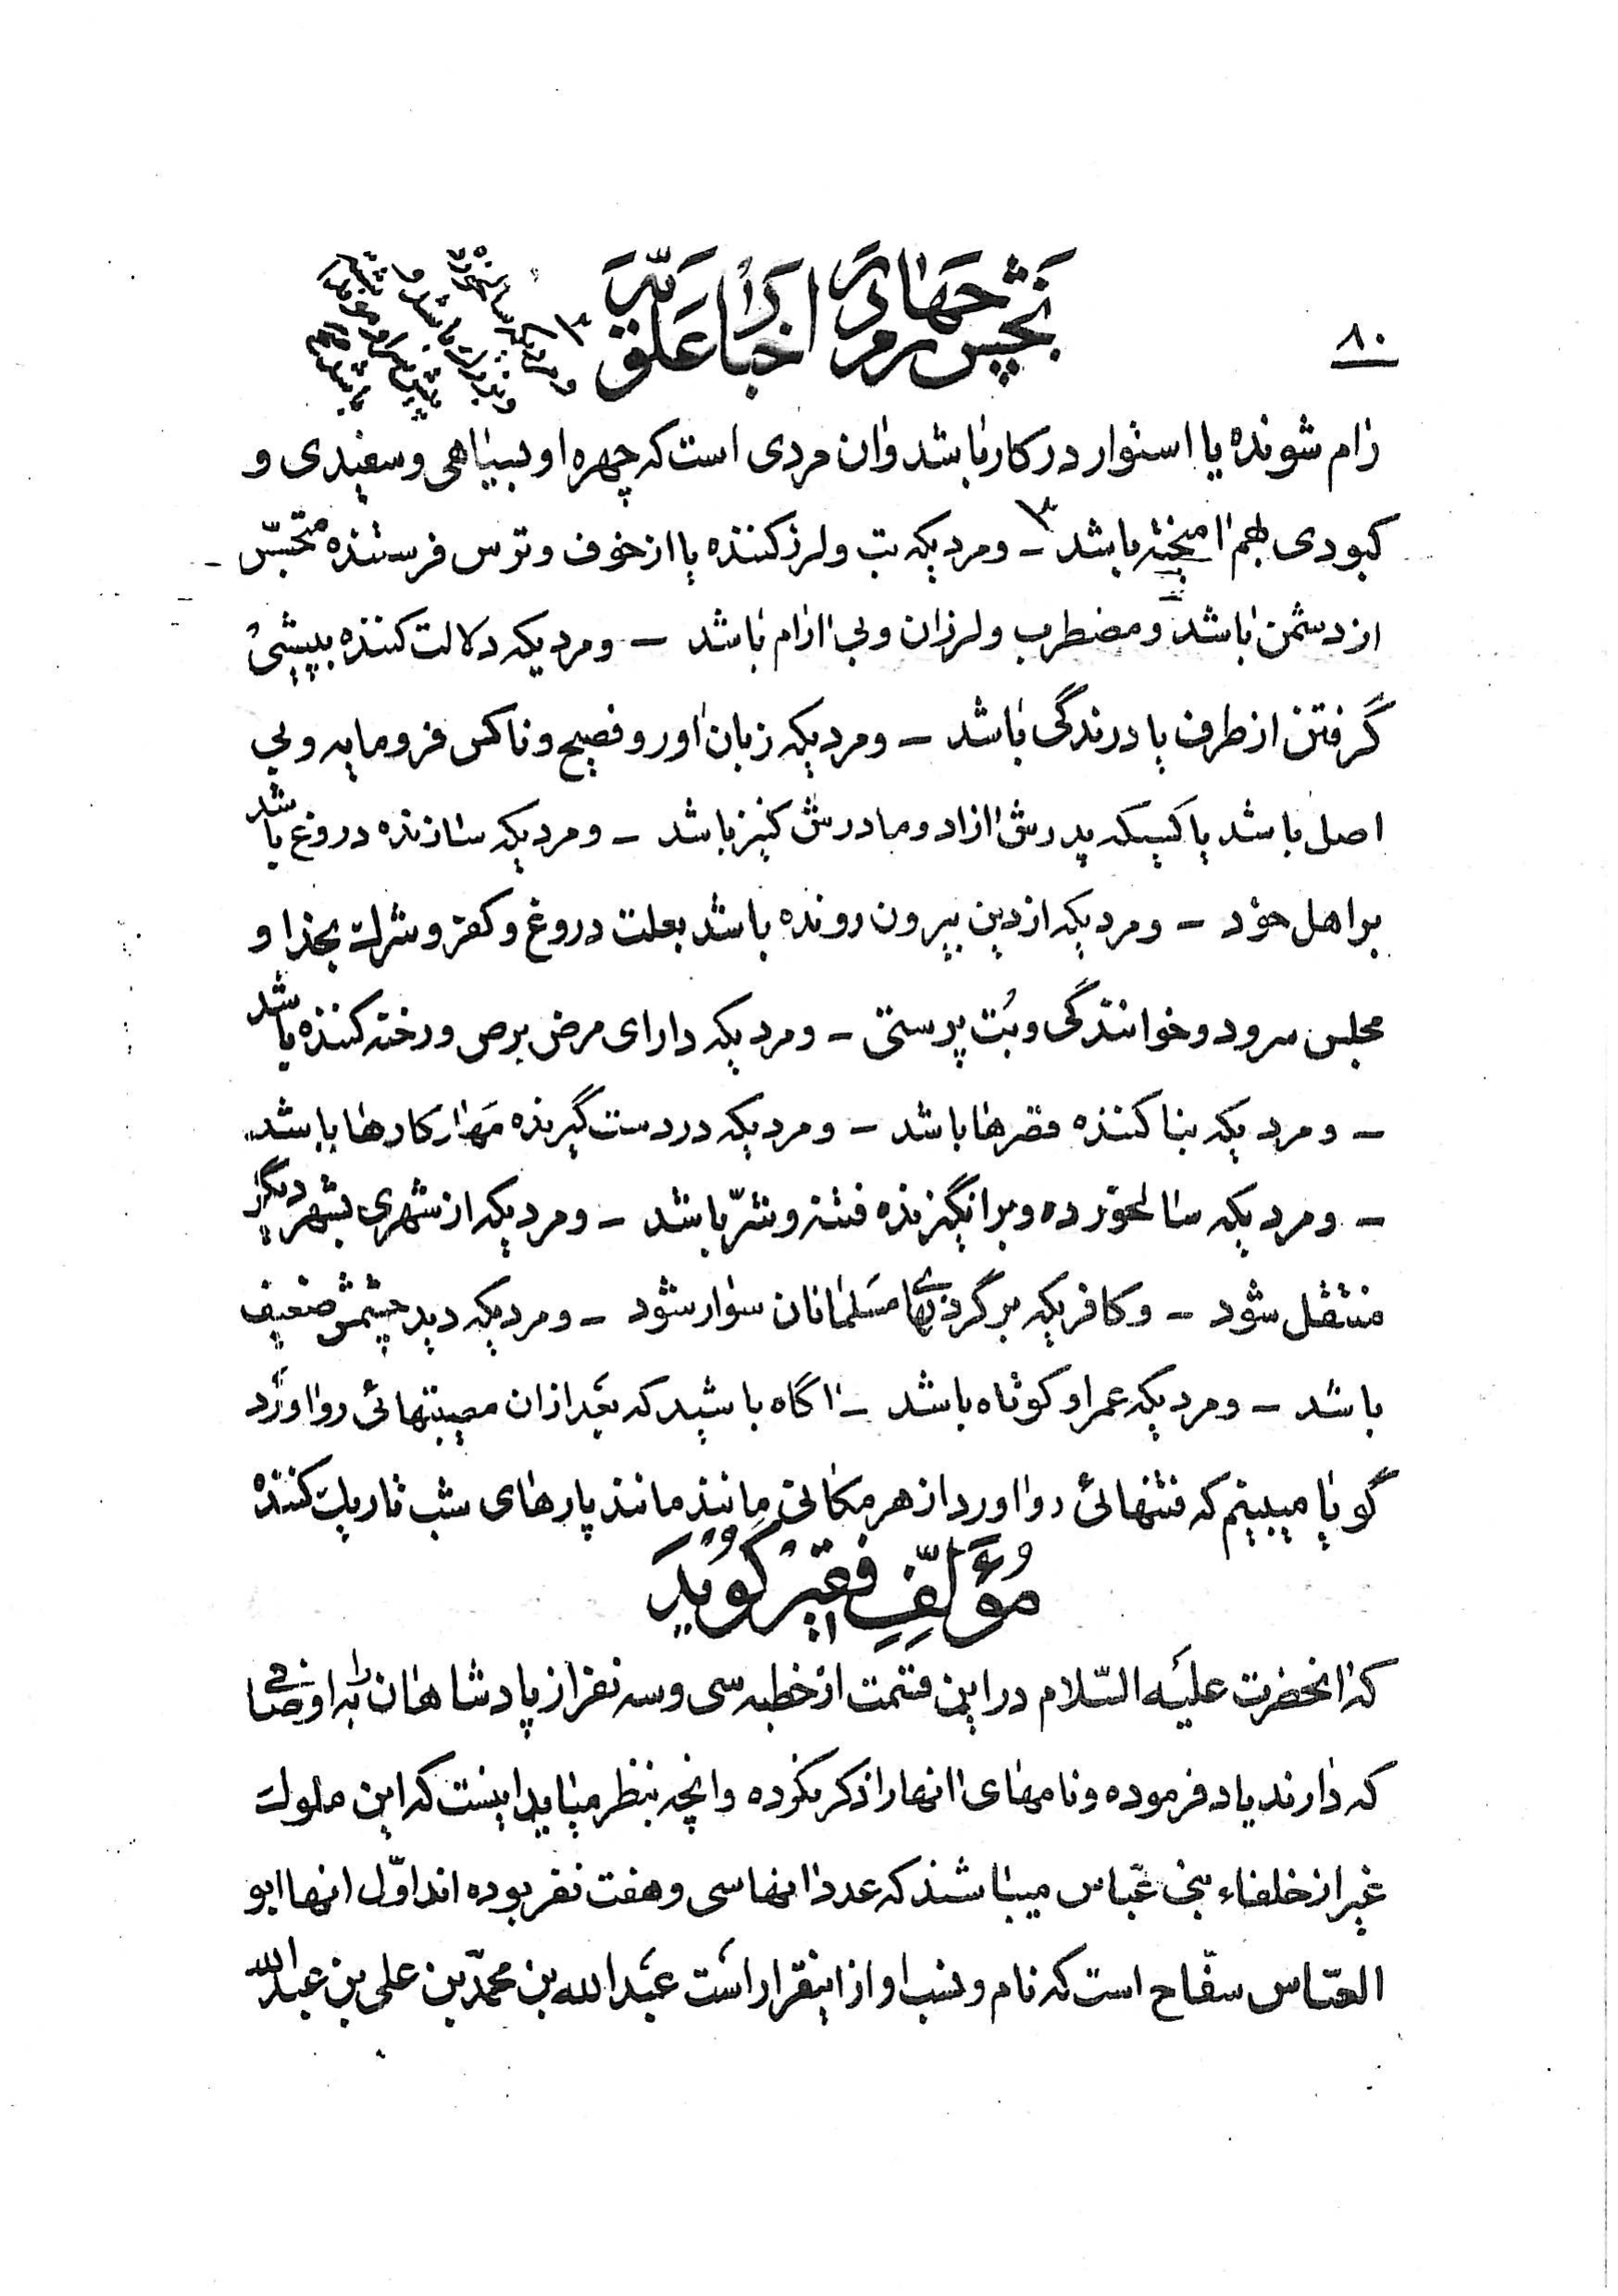 ۸۰
بخش چهارم در اخبار علویه
رام شونده یا استوار در کار باشد وان مردی است که چهره او بسیاهی و سفیدی و
کبودی بهم امیخته باشد ۳ – و مردیکه تب و لرز کننده یا از خوف و ترس فرستنده متجسّس
از دشمن باشد و مضطرب و لرزان و بی ارام باشد – و مردیکه دلالت کننده به پیشی
گرفتن از طرف یا درندگی باشد – و مردیکه زبان اور و فصیح و ناکس فرومایه و بی
اصل باشد یا کسیکه پدرش ازاد و مادرش کنیز باشد – و مردیکه سازنده دروغ باشد
بر اهل خود – و مردیکه از دین بیرون رونده باشد بعلت دروغ و کفر و شرک بخدا و
مجلس سرود و خوانندگی و بُت پرستی – و مردیکه دارای مرض برص و رخنه کننده باشد
– و مردیکه بنا کننده قصرها باشد – و مردیکه در دست گیرنده مَهار کارها باشد
– و مردیکه سالخورده و برانگیزنده فتنه و شرّ باشد – و مردیکه از شهری بشهر دیگر
منتقل شود – و کافریکه بر گردنهای مسلمانان سوار شود – و مردیکه دید چشمش ضعیف
باشد – و مردیکه عمر او کوتاه باشد – اگاه باشید که بعد از ان مصیبتهائی رو اورد
گویا میبینم که فتنهائی رو اورد از هر مکانی مانند مانند پارهای شب تاریک کننده
مُؤَلِّفِ فقیر گوید
که انحضرت علیه السّلام در این قسمت از خطبه سی و سه نفر از پادشاهان را به اوصافی
که دارند یاد فرموده و نامهای انها را ذکر نکرده وانچه بنظر میاید اینست که این ملوک
غیر از خلفاء بنی عبّاس میباشند که عدد انها سی و هفت نفر بوده اند اوّل انها ابو
العبّاس سفّاح است که نام و نسب او از اینقرار است عبد الله بن محمّد بن علی بن عبد الله